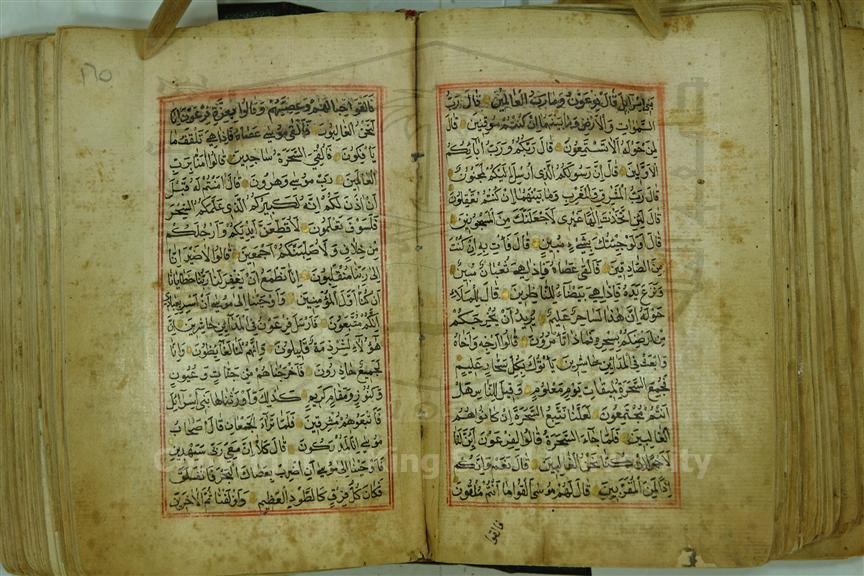 بنى اسرايل قال فرعون وما رب العالمين قال رب
السموات والارض وما بينهما ان كنتم موقنين قال
لمن حوله الا تستمعون قال ربكم ورب ابائكم
الاولين قال ان رسولكم الذى ارسل اليكم لمجنون
قال رب المشرق والمغرب وما بينهما ان كنتم تعقلون
قال لئن اتخذت الها غيرى لاجعلنك من المسجونين
قال اولو جئتك بشىء مبين قال فات به ان كنت
من الصادقين فالقى عصاه فاذا هى ثعبان مبين
ونزع يده فاذا هى بيضاء للناظرين قال للملاء
حوله ان هذا لساحر عليم يريد ان يخرجكم
من ارضكم بسحره فماذا تامرون قالوا ارجه واخاه
وابعث فى المداين حاشرين ياتوك بكل سحار عليم
فجمع السحرة لميقات يوم معلوم وقيل للناس هل
انتم مجتمعون لعلنا نتبع السحرة ان كانوا هم
الغالبين فلما جاء السحرة قالوا لفرعون اين لنا
لاجرا ان كنا نحن الغالبين قال نعم وانكم
اذا لمن المقربين قال لهم موسى القوا ما انتم ملقون
فالقوا
١٦٥
فالقوا حبالهم وعصيهم وقالوا بعزة فرعون انا
لنحن الغالبون فالقى موسى عصاه فاذا هى تلقف ما
يافكون فالقى السحرة ساجدين قالوا امنا برب
العالمين رب موسى وهرون قال امنتم له قبل
ان اذن لكم انه لكبيركم الذى علمكم السحر
فلسوف تعلمون لاقطعن ايديكم وارجلكم
من خلاف ولاصلبنكم اجمعين قالوا لا ضير انا
الى ربنا منقلبون انا نطمع ان يغفر لنا ربنا خطايانا
ان كنا اول المؤمنين واوحينا الى موسى ان اسر بعبادى
انكم متبعون فارسل فرعون فى المداين حاشرين ان
هؤلاء لشرذمة قليلون وانهم لنا لغايظون وانا
لجميع حاذرون فاخرجناهم من جنات وعيون
وكنوز ومقام كريم كذلك واورثناها بنى اسرائل
فاتبعوهم مشرقين فلما تراء الجمعان قال اصحاب
موسى انا لمدركون قال كلا ان معى ربى سيهدين
فاوحينا الى موسى ان اضرب بعصاك البحر فانفلق
فكان كل فرق كالطود العظيم وازلفنا ثم الاخرين